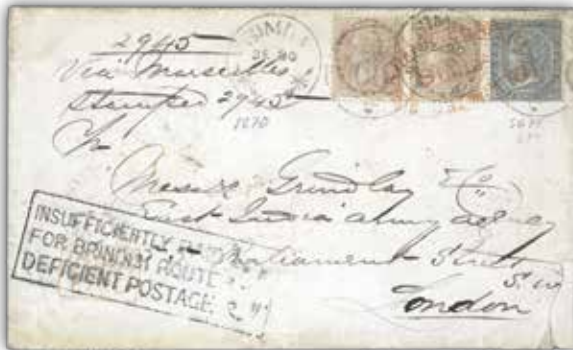 2945
Via Marseilles
Stamped 2945
SIMLA
1870
Messrs Grindlay & Co
East India Army Agency
Parliament Street
S.W
London
INSUFFICIENTLY
FOR BRINDISI ROUTE
DEFICIENT POSTAGE